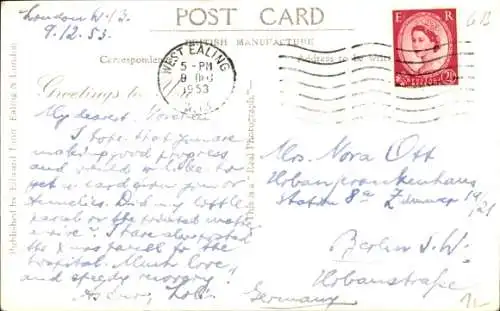 London W.13.
9.12.53.
POST CARD
BRITISH MANUFACTURE
Correspondence
Address to be writ
WEST EALING
5 - PM
9 DEC
1953
E R
Greetings to
My dearest
I hope that you are
making good progress
and would like to
get a card from you or
Did my little
parcel or the printed matter
arrive? I have also posted
the Xmas parcel to the
hospital. Much love
and speedy recovery!
As ever,
Mrs. Nora Ott
Urbankrankenhaus
Station 8a Zimmer 19/21
Berlin S.W.
Urbanstraße
Germany
Published by Edward Ealing & London
This is a "Real Photograph"